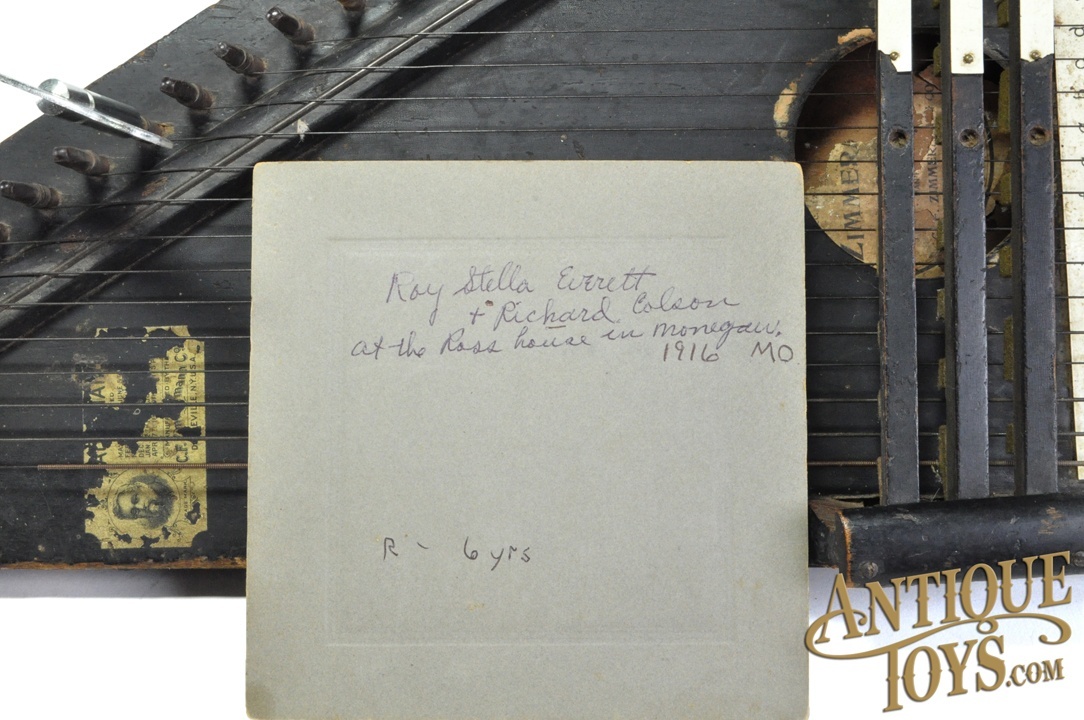 Roy Stella Everett
+ Richard Colson
at the Ross house in Monegaw.
1916 MO
R - 6 yrs
ZIMMER
ZIMMER
ANTIQUE
TOYS.COM